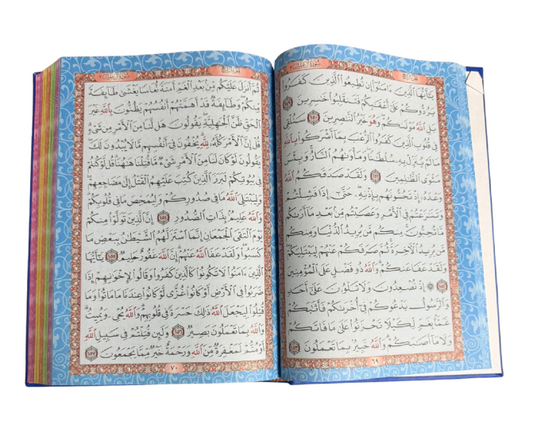 يَٰٓأَيُّهَا ٱلَّذِينَ ءَامَنُوٓاْ إِن تُطِيعُواْ ٱلَّذِينَ كَفَرُواْ
يَرُدُّوكُمْ عَلَىٰٓ أَعْقَٰبِكُمْ فَتَنقَلِبُواْ خَٰسِرِينَ ١٤٩
بَلِ ٱللَّهُ مَوْلَىٰكُمْ وَهُوَ خَيْرُ ٱلنَّٰصِرِينَ ١٥٠ سَنُلْقِى
فِى قُلُوبِ ٱلَّذِينَ كَفَرُواْ ٱلرُّعْبَ بِمَآ أَشْرَكُواْ بِٱللَّهِ
مَا لَمْ يُنَزِّلْ بِهِۦ سُلْطَٰنًا وَمَأْوَىٰهُمُ ٱلنَّارُ وَبِئْسَ
مَثْوَى ٱلظَّٰلِمِينَ ١٥١ وَلَقَدْ صَدَقَكُمُ ٱللَّهُ
وَعْدَهُۥٓ إِذْ تَحُسُّونَهُم بِإِذْنِهِۦ حَتَّىٰٓ إِذَا فَشِلْتُمْ
وَتَنَٰزَعْتُمْ فِى ٱلْأَمْرِ وَعَصَيْتُم مِّنۢ بَعْدِ مَآ أَرَىٰكُم
مَّا تُحِبُّونَ مِنكُم مَّن يُرِيدُ ٱلدُّنْيَا وَمِنكُم
مَّن يُرِيدُ ٱلْءَاخِرَةَ ثُمَّ صَرَفَكُمْ عَنْهُمْ لِيَبْتَلِيَكُمْ
وَلَقَدْ عَفَا عَنكُمْ وَٱللَّهُ ذُو فَضْلٍ عَلَى ٱلْمُؤْمِنِينَ
١٥٢ إِذْ تُصْعِدُونَ وَلَا تَلْوُۥنَ عَلَىٰٓ أَحَدٍ
وَٱلرَّسُولُ يَدْعُوكُمْ فِىٓ أُخْرَىٰكُمْ فَأَثَٰبَكُمْ
غَمًّۢا بِغَمٍّ لِّكَيْلَا تَحْزَنُواْ عَلَىٰ مَا فَاتَكُمْ
وَلَا مَآ أَصَٰبَكُمْ وَٱللَّهُ خَبِيرٌۢ بِمَا تَعْمَلُونَ ١٥٣
٦٩
ثُمَّ أَنزَلَ عَلَيْكُم مِّنۢ بَعْدِ ٱلْغَمِّ أَمَنَةً نُّعَاسًا يَغْشَىٰ طَآئِفَةً
مِّنكُمْ وَطَآئِفَةٌ قَدْ أَهَمَّتْهُمْ أَنفُسُهُمْ يَظُنُّونَ بِٱللَّهِ غَيْرَ
ٱلْحَقِّ ظَنَّ ٱلْجَٰهِلِيَّةِ يَقُولُونَ هَل لَّنَا مِنَ ٱلْأَمْرِ مِن شَىْءٍ
قُلْ إِنَّ ٱلْأَمْرَ كُلَّهُۥ لِلَّهِ يُخْفُونَ فِىٓ أَنفُسِهِم مَّا لَا يُبْدُونَ لَكَ
يَقُولُونَ لَوْ كَانَ لَنَا مِنَ ٱلْأَمْرِ شَىْءٌ مَّا قُتِلْنَا هَٰهُنَا قُل لَّوْ كُنتُمْ
فِى بُيُوتِكُمْ لَبَرَزَ ٱلَّذِينَ كُتِبَ عَلَيْهِمُ ٱلْقَتْلُ إِلَىٰ مَضَاجِعِهِمْ
وَلِيَبْتَلِىَ ٱللَّهُ مَا فِى صُدُورِكُمْ وَلِيُمَحِّصَ مَا فِى قُلُوبِكُمْ
وَٱللَّهُ عَلِيمٌۢ بِذَاتِ ٱلصُّدُورِ ١٥٤ إِنَّ ٱلَّذِينَ تَوَلَّوْاْ مِنكُمْ
يَوْمَ ٱلْتَقَى ٱلْجَمْعَانِ إِنَّمَا ٱسْتَزَلَّهُمُ ٱلشَّيْطَٰنُ بِبَعْضِ مَا
كَسَبُواْ وَلَقَدْ عَفَا ٱللَّهُ عَنْهُمْ إِنَّ ٱللَّهَ غَفُورٌ حَلِيمٌ ١٥٥ يَٰٓأَيُّهَا
ٱلَّذِينَ ءَامَنُواْ لَا تَكُونُواْ كَٱلَّذِينَ كَفَرُواْ وَقَالُواْ لِإِخْوَٰنِهِمْ إِذَا
ضَرَبُواْ فِى ٱلْأَرْضِ أَوْ كَانُواْ غُزًّى لَّوْ كَانُواْ عِندَنَا مَا مَاتُواْ وَمَا
قُتِلُواْ لِيَجْعَلَ ٱللَّهُ ذَٰلِكَ حَسْرَةً فِى قُلُوبِهِمْ وَٱللَّهُ يُحْىِۦ وَيُمِيتُ
وَٱللَّهُ بِمَا تَعْمَلُونَ بَصِيرٌ ١٥٦ وَلَئِن قُتِلْتُمْ فِى سَبِيلِ ٱللَّهِ
أَوْ مُتُّمْ لَمَغْفِرَةٌ مِّنَ ٱللَّهِ وَرَحْمَةٌ خَيْرٌ مِّمَّا يَجْمَعُونَ ١٥٧
٧٠